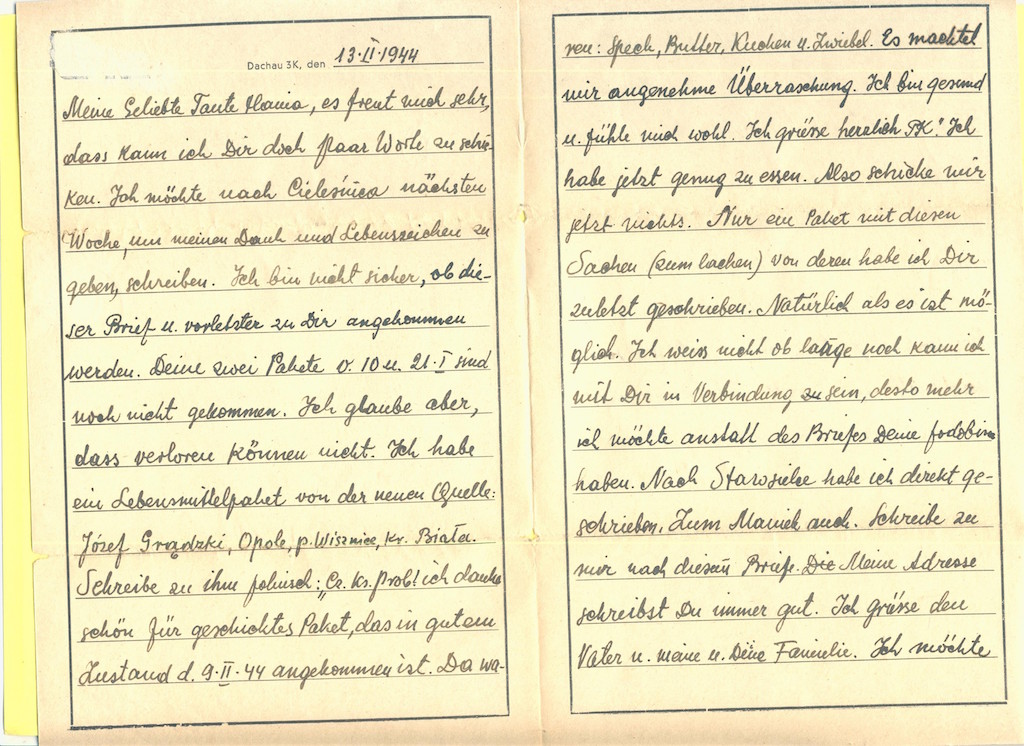 Dachau 3K, den 13·II·1944
Meine Geliebte Tante Hania, es freut mich sehr,
dass kann ich Dir doch Paar Worte zu schi-
ken. Ich möchte nach Cieleśnica nächsten
Woche, um meinen Dank und Lebenszeichen zu
geben, schreiben. Ich bin nicht sicher, ob die-
ser Brief u. vorletzter zu Dir angekommen
werden. Deine zwei Pakete v. 10 u. 21·I sind
noch nicht gekommen. Ich glaube aber,
dass verloren können nicht. Ich habe
ein Lebensmittelpaket von der neuen Quelle:
Józef Grądzki, Opole, p. Wisznice, kr. Biała.
Schreibe zu ihm polnisch: „Cz. Ks. Prob! ich danke
schön für geschicktes Paket, das in gutem
Zustand d. 9·II·44 angekommen ist. Da wa-
ren: Speck, Butter, Kuchen u. Zwiebel. Es machtet
mir angenehme Überraschung. Ich bin gesund
u. fühle mich wohl. Ich grüsse herzlich PK". Ich
habe jetzt genug zu essen. Also schicke mir
jetzt nichts. Nur ein Paket mit diesen
Sachen (zum lachen) von deren habe ich Dir
zuletzt geschrieben. Natürlich als es ist mö-
glich. Ich weiss nicht ob lange noch kann ich
mit Dir in Verbindung zu sein, desto mehr
ich möchte anstatt des Briefes Deine
haben. Nach Starosielce habe ich direkt ge-
schrieben. Zum Maniek auch. Schreibe zu
mir nach diesem Briefe. Die Meine Adresse
schreibst Du immer gut. Ich grüsse den
Vater u. meine u. Deine Familie. Ich möchte